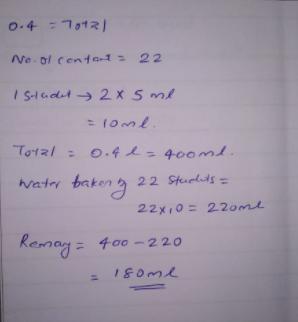 0.4 = Total
No. of contant = 22
1 Studet → 2 x 5 ml
= 10ml.
Total = 0.4 l = 400ml.
Water taken by 22 Studets =
22x10 = 220ml
Remag = 400 - 220
= 180ml